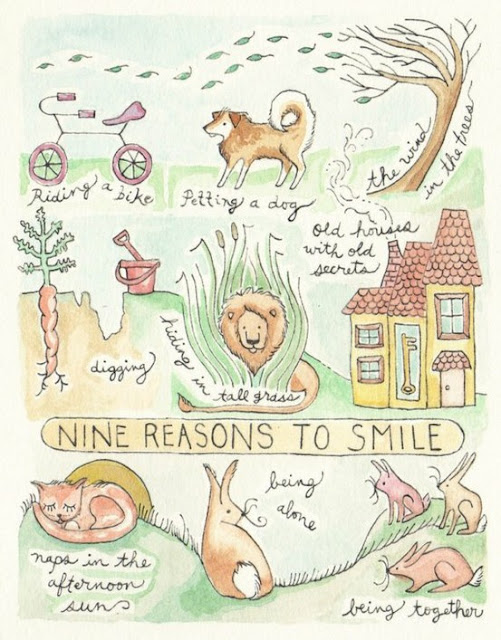 Riding a bike
Petting a dog
the wind
in the trees
old houses
with old
secrets
digging
hiding in tall grass
NINE REASONS TO SMILE
naps in the
afternoon
sun
being
alone
being together